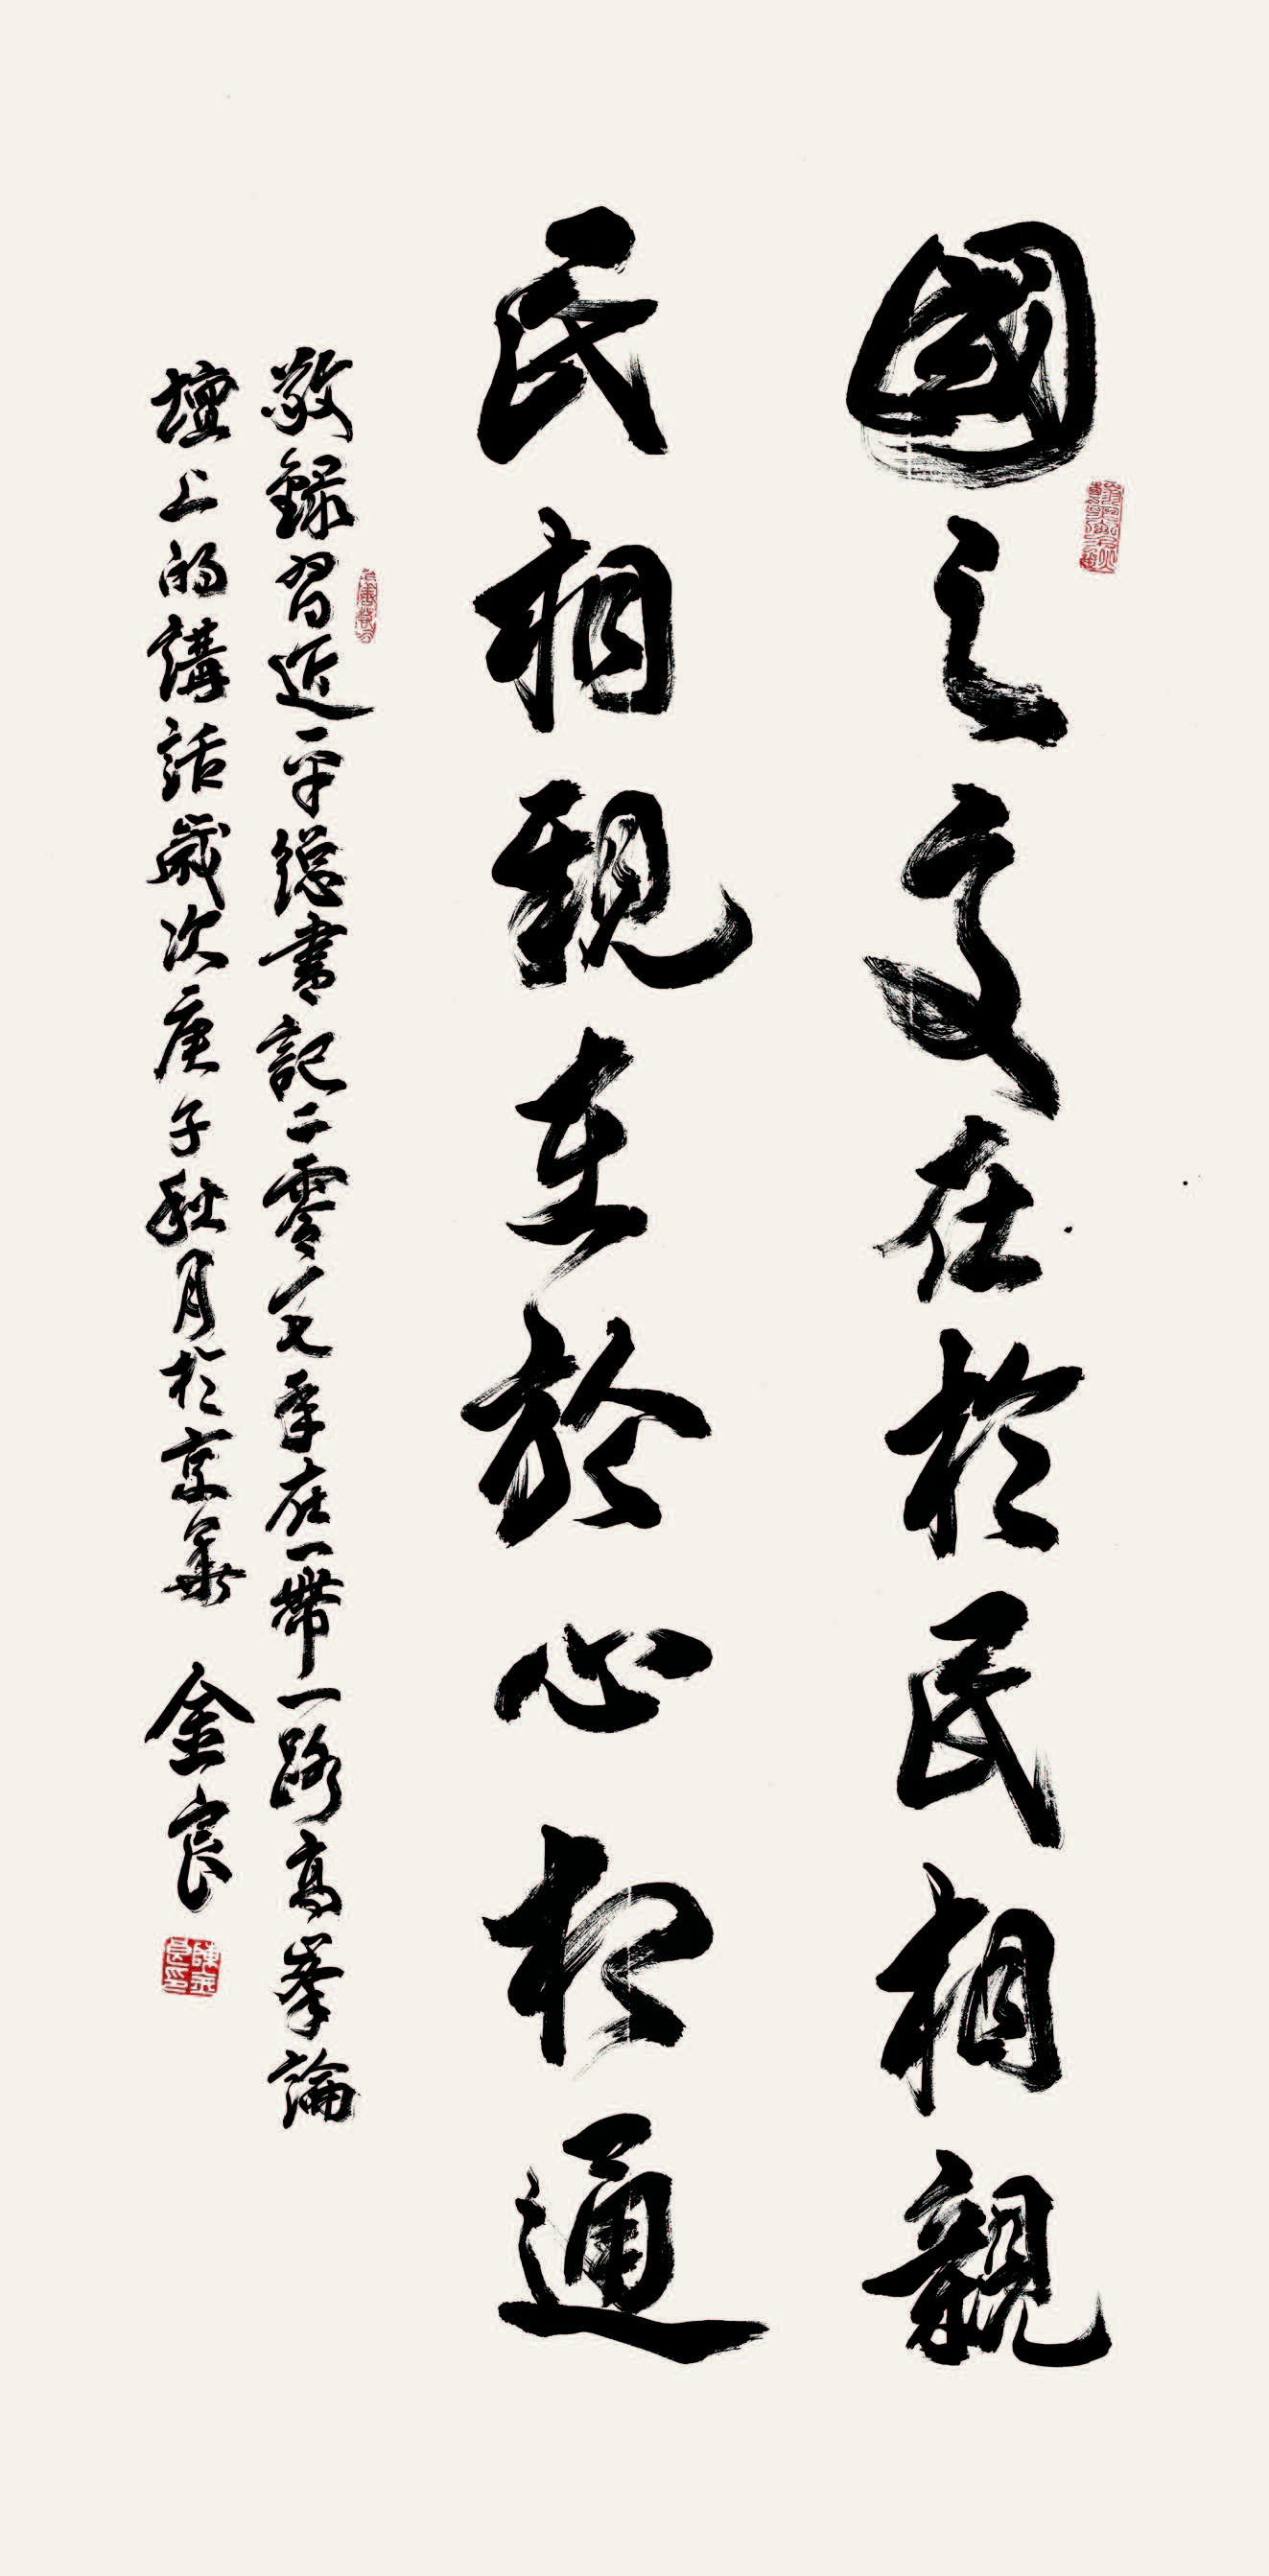 國之交在於民相親
民相親在於心相通
敬錄習近平總書記二零一七年在一帶一路高峯論
壇上的講話歲次庚子秋月於京華 金良
陳金良印